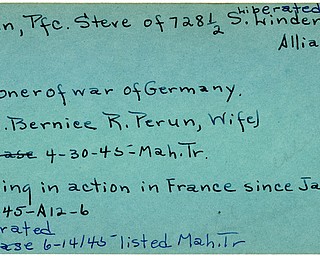 n, Pfc. Steve of 728 1/2 S. Linden
Liberated
Allia
oner of war of Germany.
. Berniee R. Perun, Wife)
ase 4-30-45-Mah. Tr.
ing in action in France since Ja
45-A12-6
rated
ase 6-14/45-listed Mah. Tr